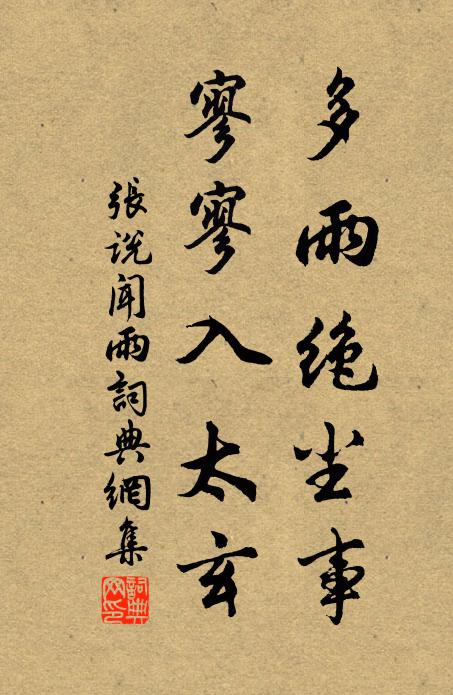 多雨绝尘事
寥寥入太玄
張说闻雨詞典網集
詞典网印